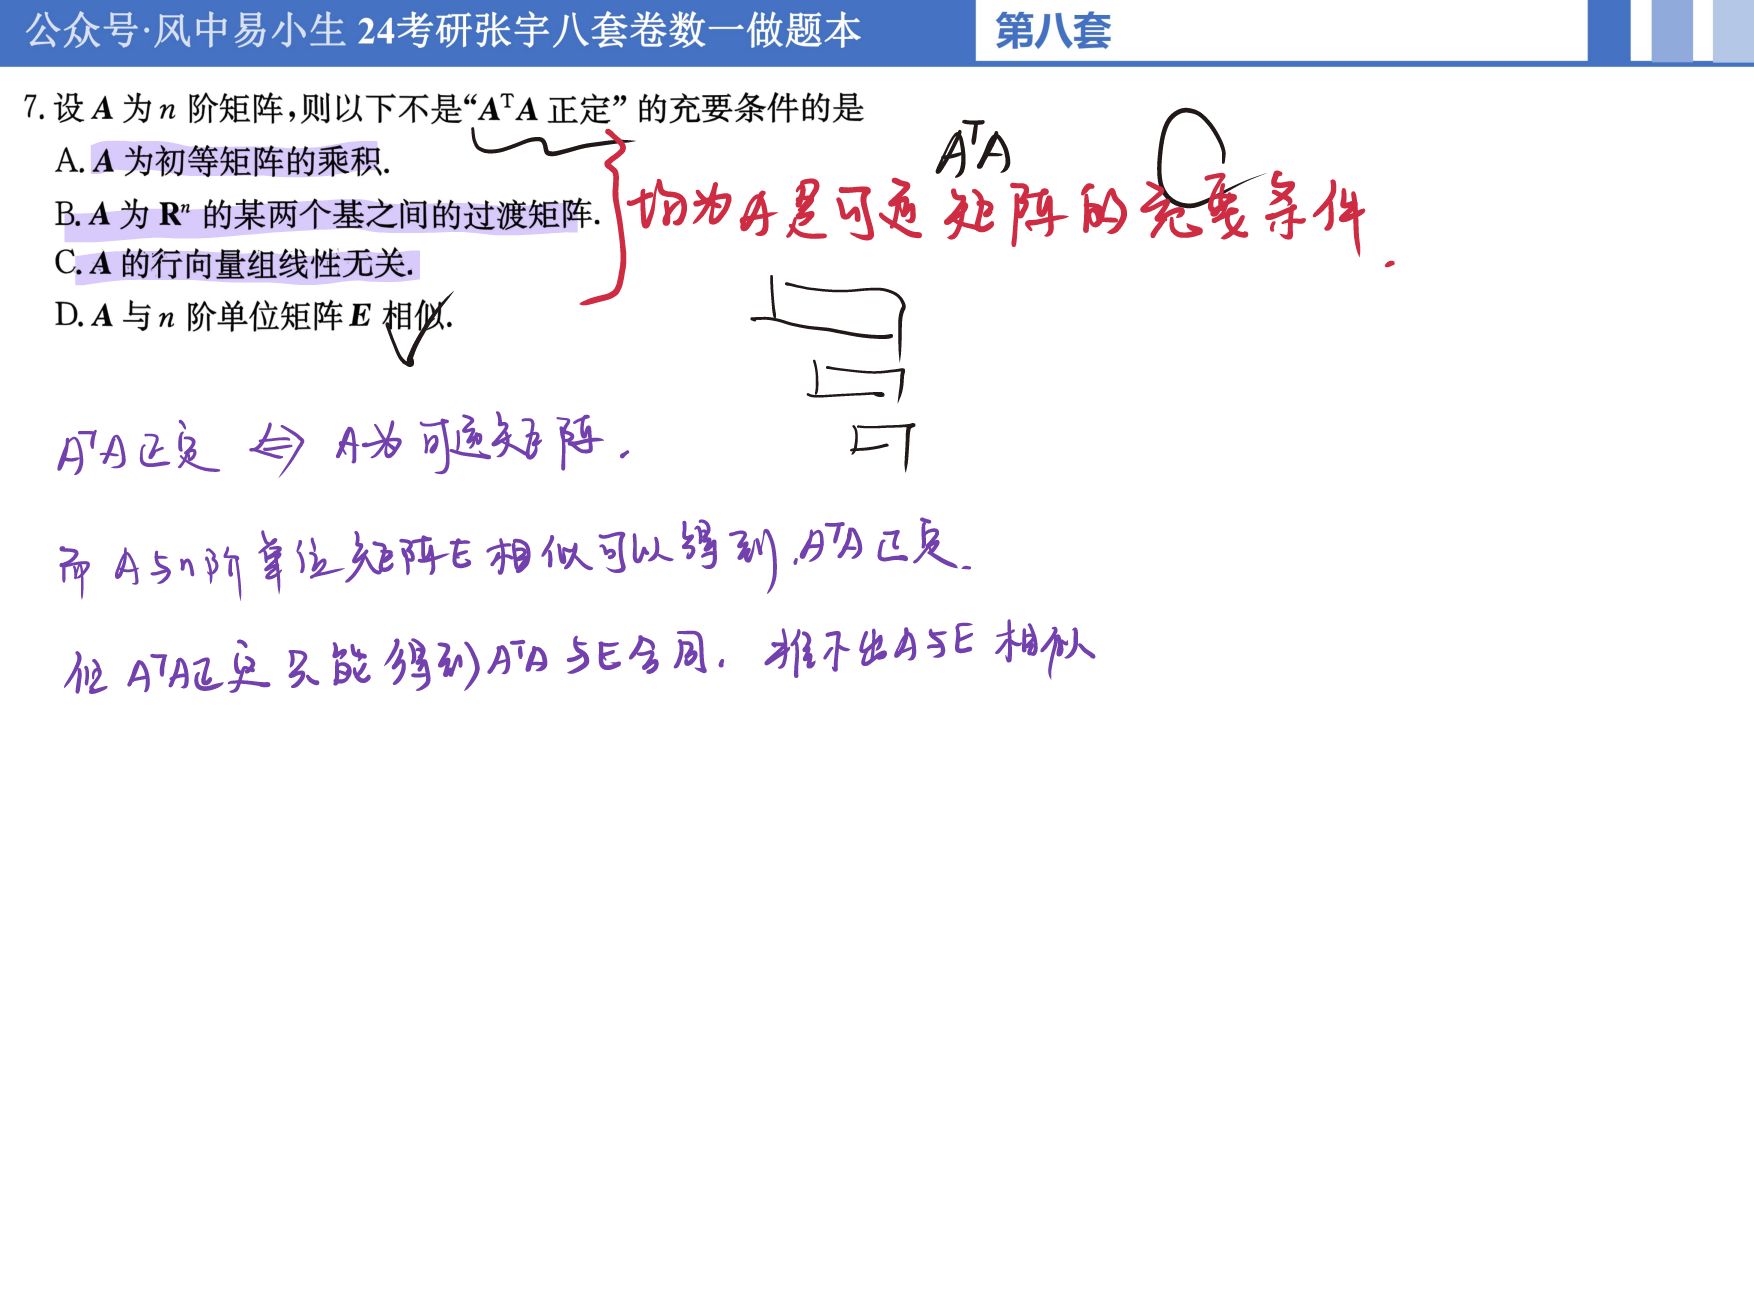 公众号·风中易小生 24考研张宇八套卷数一做题本 第八套
7. 设 A 为 n 阶矩阵,则以下不是“AᵀA 正定”的充要条件的是
A. A 为初等矩阵的乘积.
B. A 为 Rⁿ 的某两个基之间的过渡矩阵.
C. A 的行向量组线性无关.
D. A 与 n 阶单位矩阵 E 相似.
AᵀA
均为A是可逆矩阵的充要条件.
AᵀA正定 ⇔ A为可逆矩阵.
而 A与n阶单位矩阵E相似可以得到,AᵀA正定.
但 AᵀA正定只能得到AᵀA与E合同. 推不出A与E相似